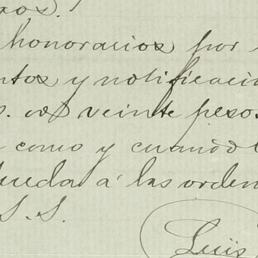 honorarios por
y notificacio
veinte pesos
como y cuando
queda á las orden
S. S.
Luis